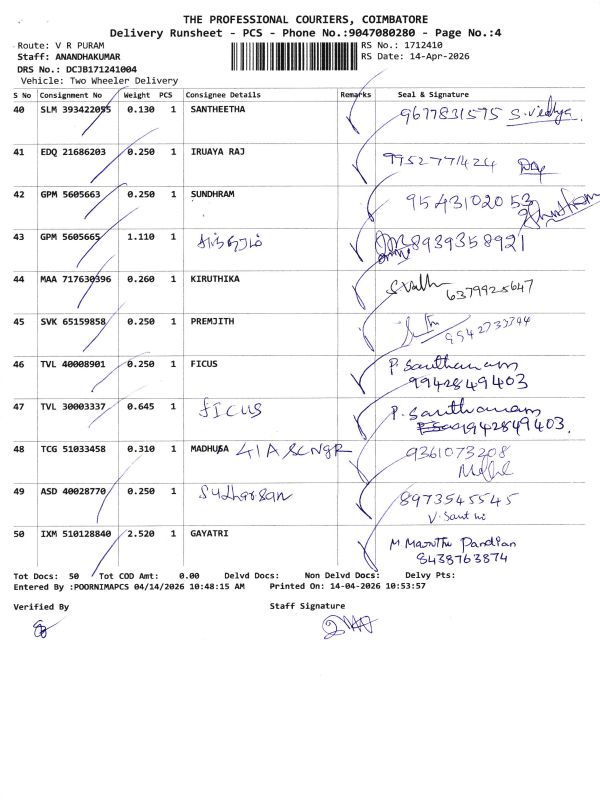 THE PROFESSIONAL COURIERS, COIMBATORE
Delivery Runsheet - PCS - Phone No.:9047080280 - Page No.:4
Route: V R PURAM RS No.: 1712410
Staff: ANANDHAKUMAR RS Date: 14-Apr-2026
DRS No.: DCJB171241004
Vehicle: Two Wheeler Delivery
S No Consignment No Weight PCS Consignee Details Remarks Seal & Signature
40 SLM 393422055 0.130 1 SANTHEETHA 9677831575 S.Vidhya.
41 EDQ 21686203 0.250 1 IRUAYA RAJ 9952771424
42 GPM 5605663 0.250 1 SUNDHRAM 9543102053
43 GPM 5605665 1.110 1 8939358921
44 MAA 717630396 0.260 1 KIRUTHIKA
6379925647
45 SVK 65159858 0.250 1 PREMJITH
46 TVL 40008901 0.250 1 FICUS P. Santhanam
9942849403
47 TVL 30003337 0.645 1 fICUS P. Santhanam
9942849403.
48 TCG 51033458 0.310 1 MADHUSA 9361073208
49 ASD 40028770 0.250 1 Sudharsan 8973545545
V. Santhi
50 IXM 510128840 2.520 1 GAYATRI M. Pandian
8438763874
Tot Docs: 50 Tot COD Amt: 0.00 Delvd Docs: Non Delvd Docs: Delvy Pts:
Entered By :POORNIMAPCS 04/14/2026 10:48:15 AM Printed On: 14-04-2026 10:53:57
Verified By Staff Signature